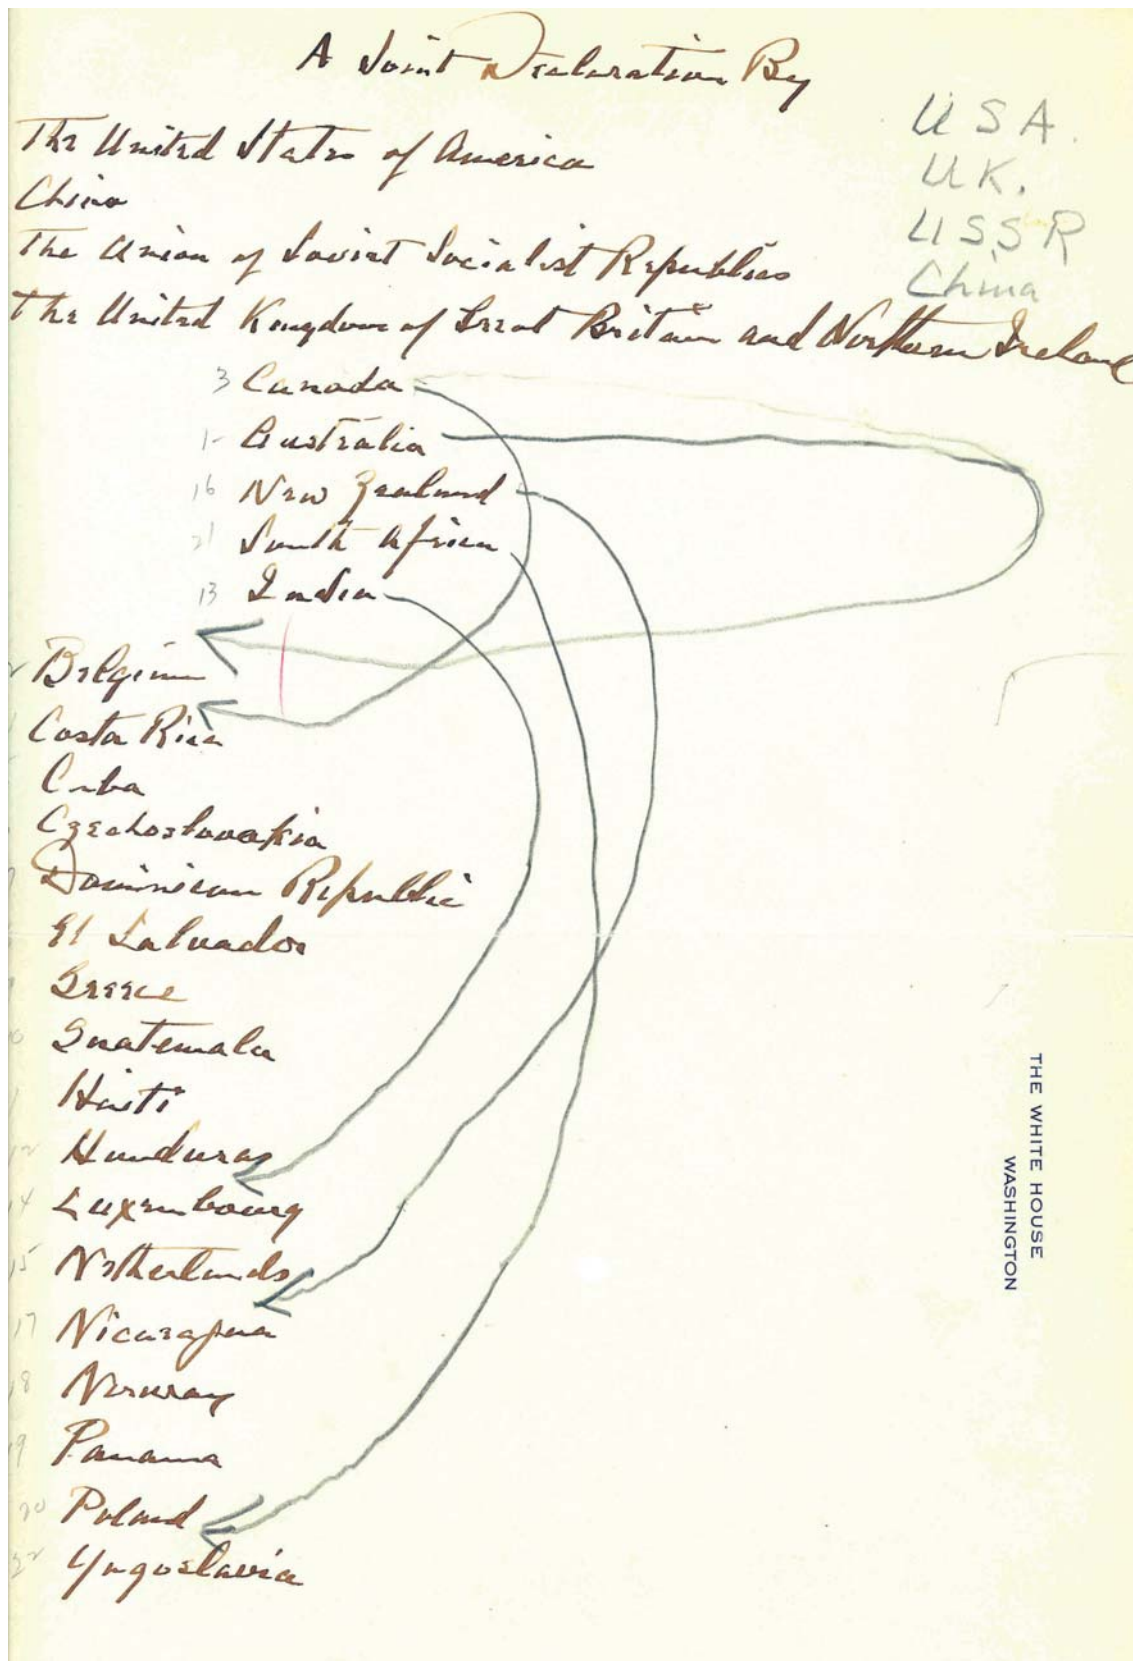 A Joint Declaration By
USA.
UK.
USSR
China
The United States of America
China
The Union of Soviet Socialist Republics
The United Kingdom of Great Britain and Northern Ireland
3 Canada
1- Australia
16 New Zealand
21 South Africa
13 India
2 Belgium
Costa Rica
Cuba
Czechoslovakia
Dominican Republic
El Salvador
Greece
Guatemala
Haiti
12 Honduras
14 Luxembourg
15 Netherlands
17 Nicaragua
18 Norway
19 Panama
20 Poland
22 Yugoslavia
THE WHITE HOUSE
WASHINGTON